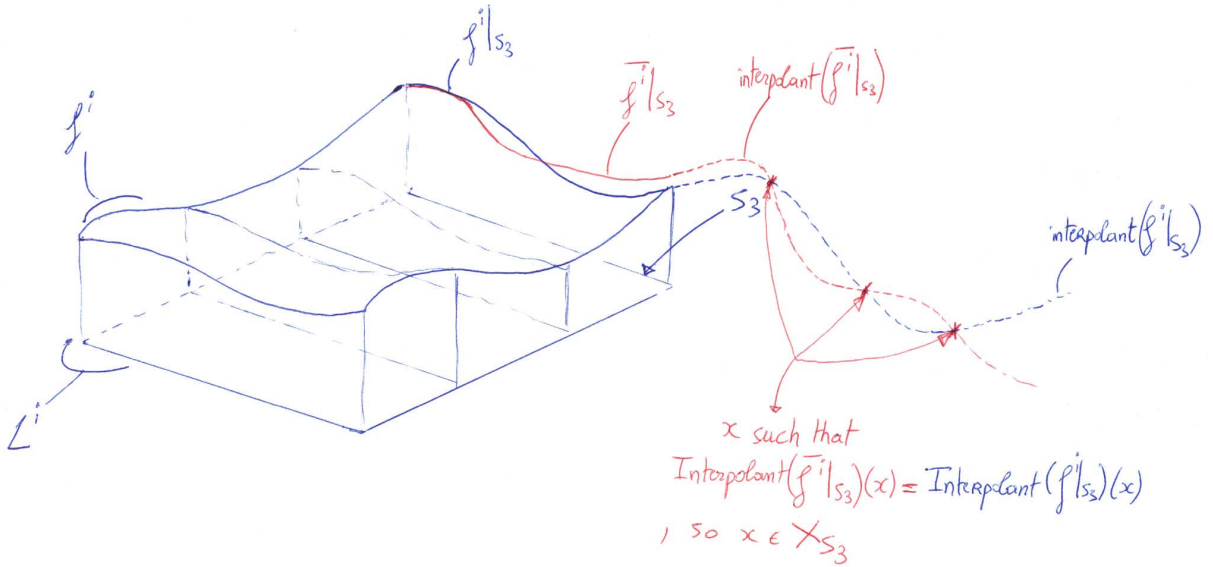 fⁱ|S₃
f̅ⁱ|S₃
interpolant(f̅ⁱ|S₃)
fⁱ
S₃
interpolant(fⁱ|S₃)
Lⁱ
x such that
Interpolant(f̅ⁱ|S₃)(x) = Interpolant(fⁱ|S₃)(x)
, so x ∈ X_S₃